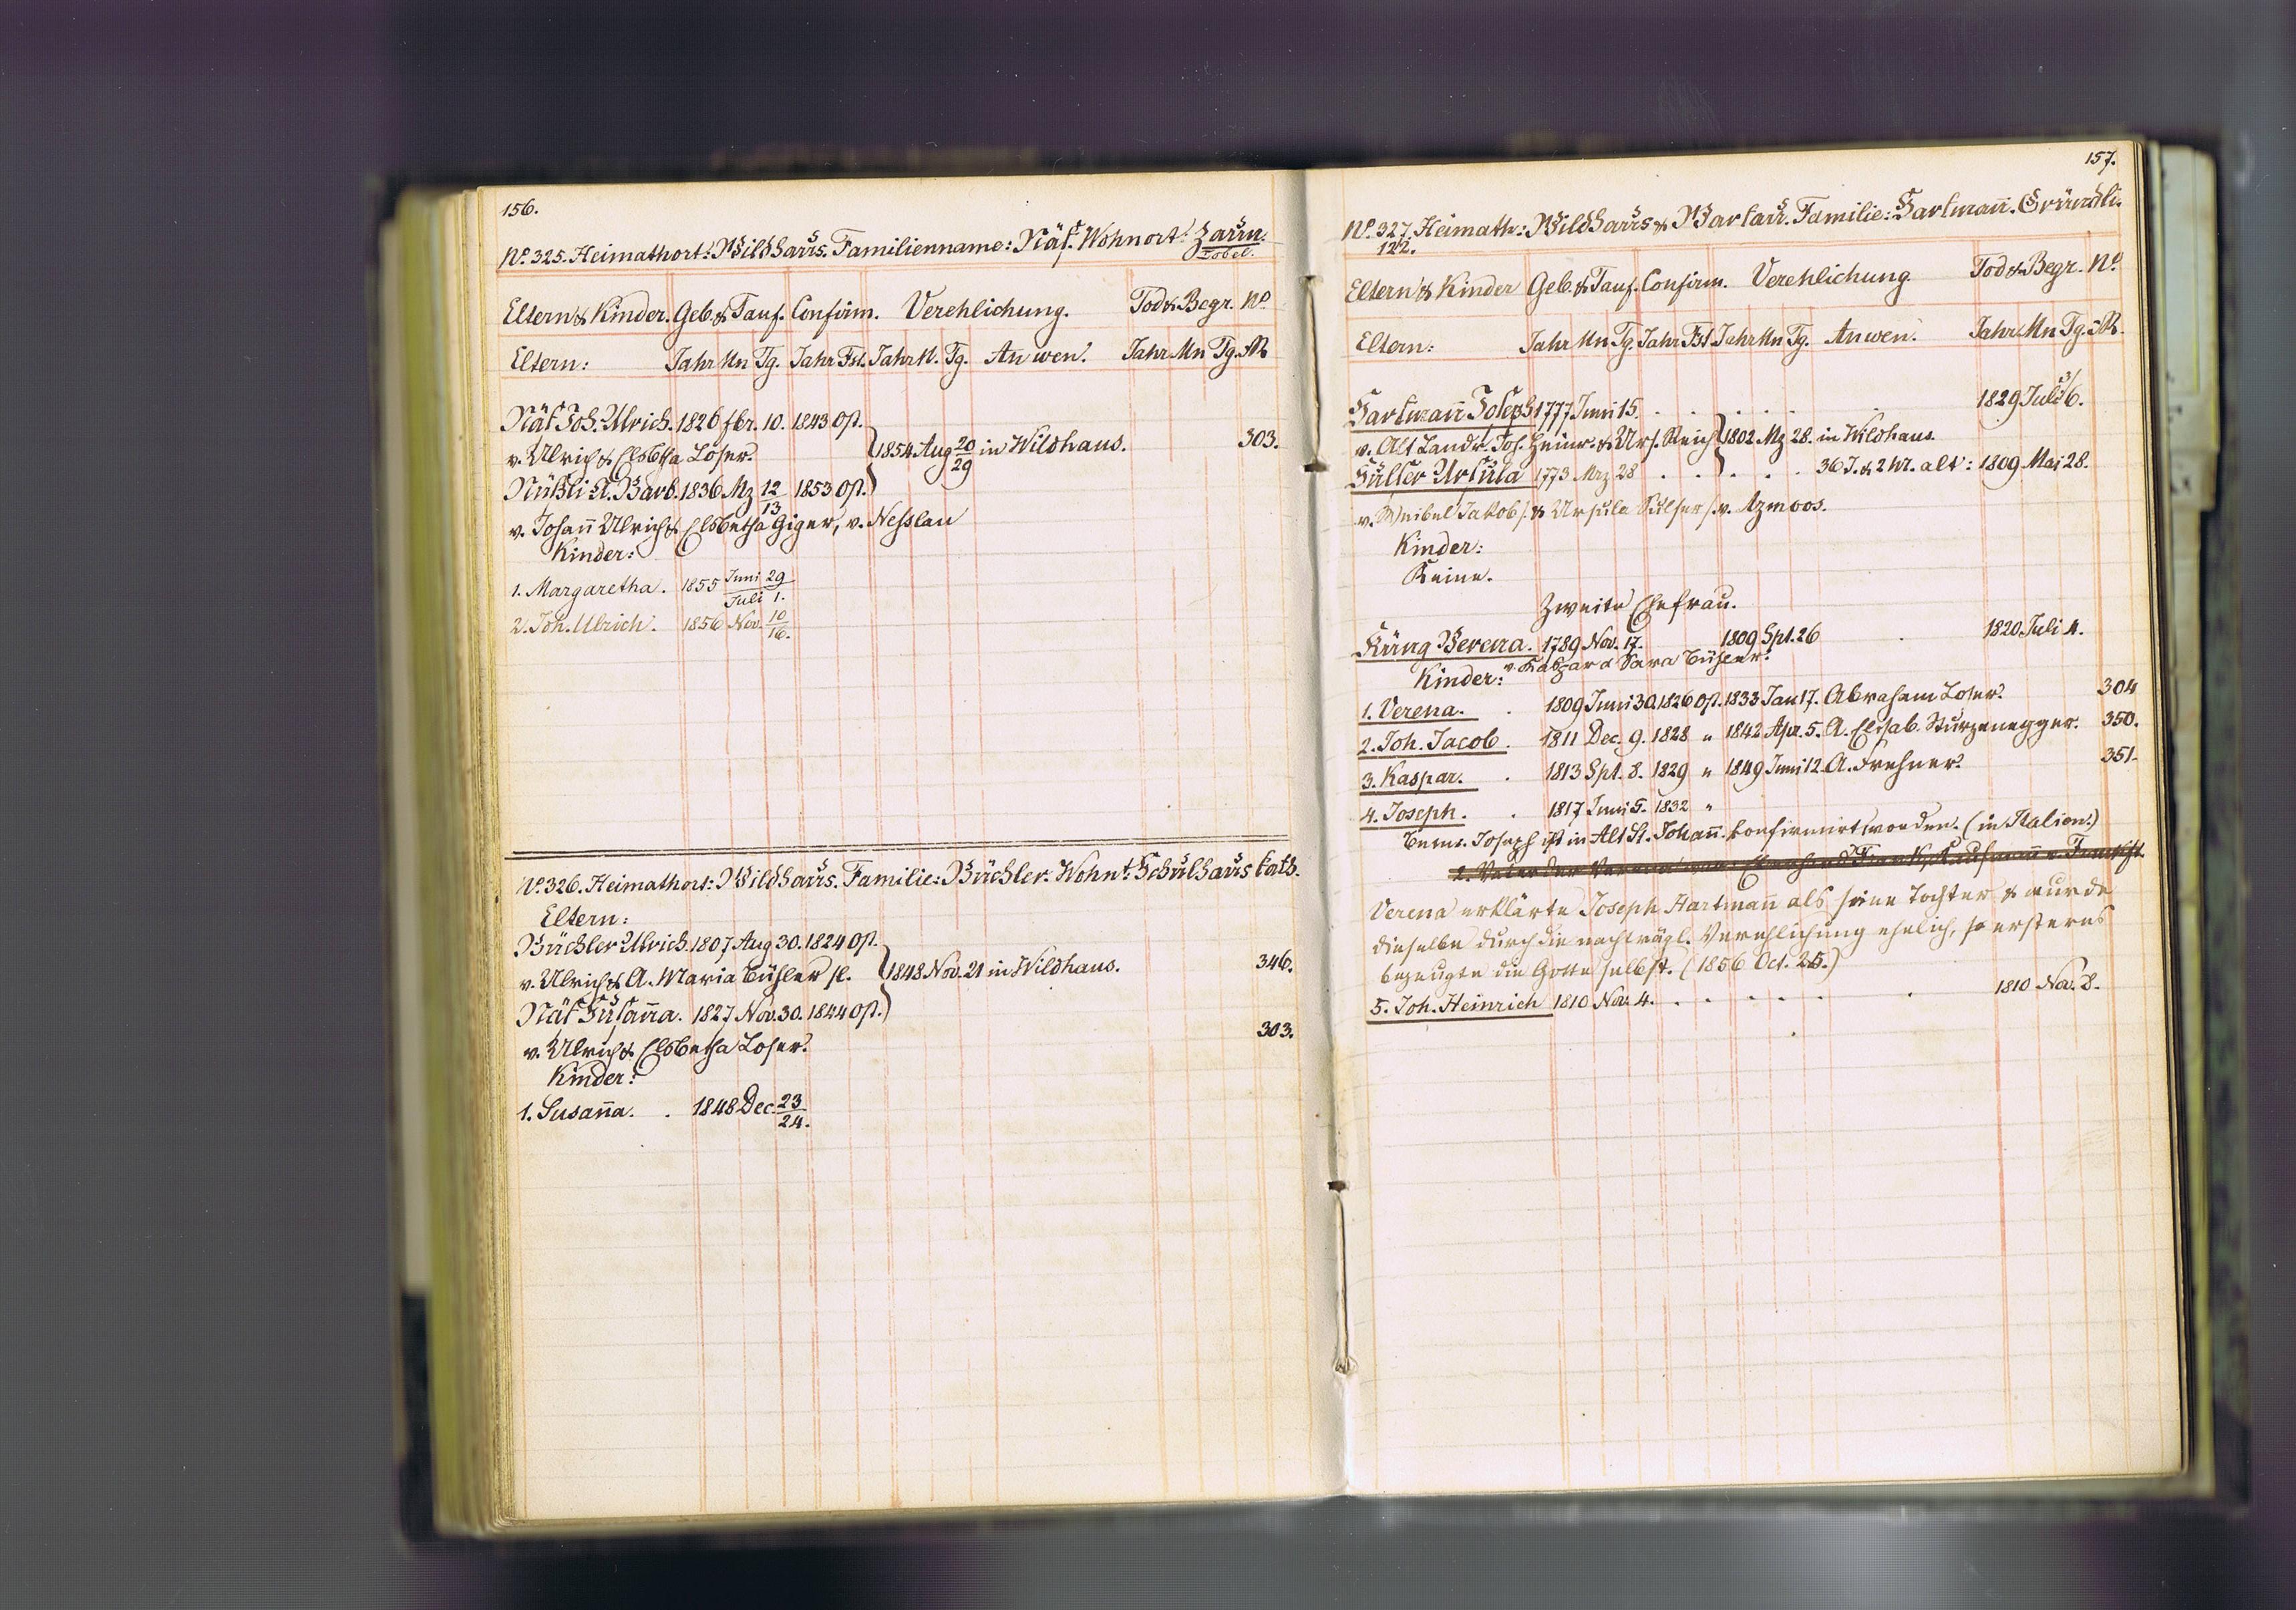 156.
No. 325. Heimathort: Wildhaus. Familienname: Näf. Wohnort: Zaun.
Tobel.
Eltern & Kinder. Geb. & Tauf. Confirm. Verehlichung. Tod & Begr. No
Eltern: Jahr Mn Tg. Jahr Fst. Jahr M. Tg. An wen? Jahr Mn Tg. M
Näf Joh. Ulrich. 1826 fbr. 10. 1843 Ost.
v. Ulrich & Elsbetha Loser. 1854 Aug 20/29 in Wildhaus. 303.
Nüßli A. Barb. 1836 Mz 12/13 1853 Ost.
v. Johañ Ulrich & Elsbetha Giger, v. Nesslau
Kinder:
1. Margaretha. 1855 Juni 29 / Juli 1.
2. Joh. Ulrich. 1856 Nov. 10/16.
No. 326. Heimathort: Wildhaus. Familie: Büchler. Wohnt: Schulhaus kath.
Eltern:
Büchler Ulrich. 1807 Aug 30. 1824 Ost.
v. Ulrich & A. Maria Bühler sl. 1848 Nov. 21 in Wildhaus. 346.
Näf Susañna. 1827 Nov. 30. 1844 Ost.
v. Ulrich & Elsbetha Loser. 303.
Kinder:
1. Susaña. . 1848 Dec. 23/24.
157.
No. 327. Heimath: Wildhaus & Wartau. Familie: Hartmañ. Gründli.
122.
Eltern & Kinder Geb. & Tauf. Confirm. Verehlichung. Tod & Begr. No
Eltern: Jahr Mn Tg. Jahr Fst Jahr Mn Tg. An wen? Jahr Mn Tg. M.
Hartmañ Joseph 1777 Juni 15. . . . . . 1829 Juli 3/6.
v. Alt Landr. Jos. Heinr. & Urs. Reich 1802 Mz 28. in Wildhaus.
Sulser Ursula 1773 Mrz 28 . . . . . 36 J. & 2 Mt. alt: 1809 Mai 28.
Jakob & Ursula Sulser v. Azmoos.
Kinder:
Keine.
Zweite Ehefrau.
Küng Verena. 1789 Nov. 17. 1809 Spt. 26 . 1820 Juli 4.
Kinder: v. Kaspar & Sara Bühler.
1. Verena. . 1809 Juni 30. 1826 Ost. 1833 Jan 17. Abraham Loser. 304
2. Joh. Jacob. 1811 Dec. 9. 1828 " 1842 Apr. 5. A. Elisab. Sturzenegger. 350.
3. Kaspar. . 1813 Spt. 8. 1829 " 1849 Juni 12. A. Frehner. 351.
4. Joseph. . 1817 Juni 5. 1832 "
Joseph ist in Alt St. Johañ konfirmirt worden. (in Italien.)
Vater der Verena
Verena erklärte Joseph Hartmañ als seine Tochter & wurde
dieselbe durch die nachträgl. Verehlichung ehelich, so ersteres
bezeugte die Gotte selbst. (1856 Oct. 25.)
5. Joh. Heinrich 1810 Nov. 4. . . . . . . 1810 Nov. 8.